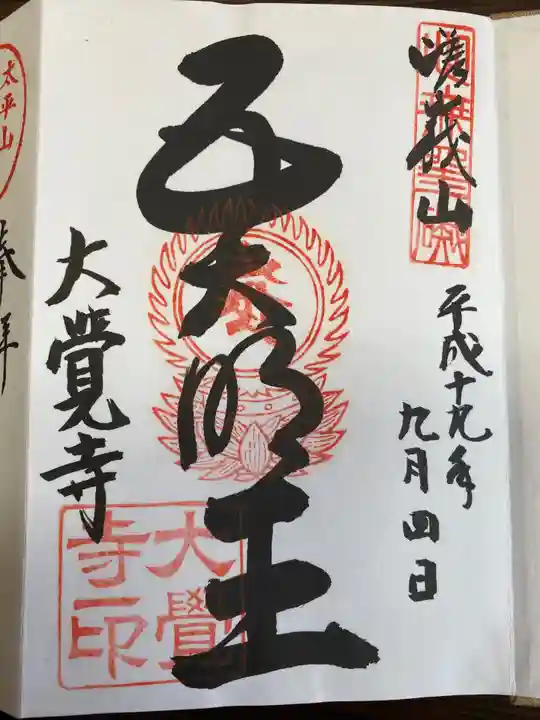 嵯峨山
平成十九年
九月四日
五大明王
大覺寺
大覺寺印
太平山
奉拝